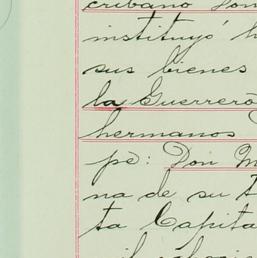 cribano Don
instituyó h
sus bienes
la Guerrero
hermanos
pe: Don M
na de su
ta Capita